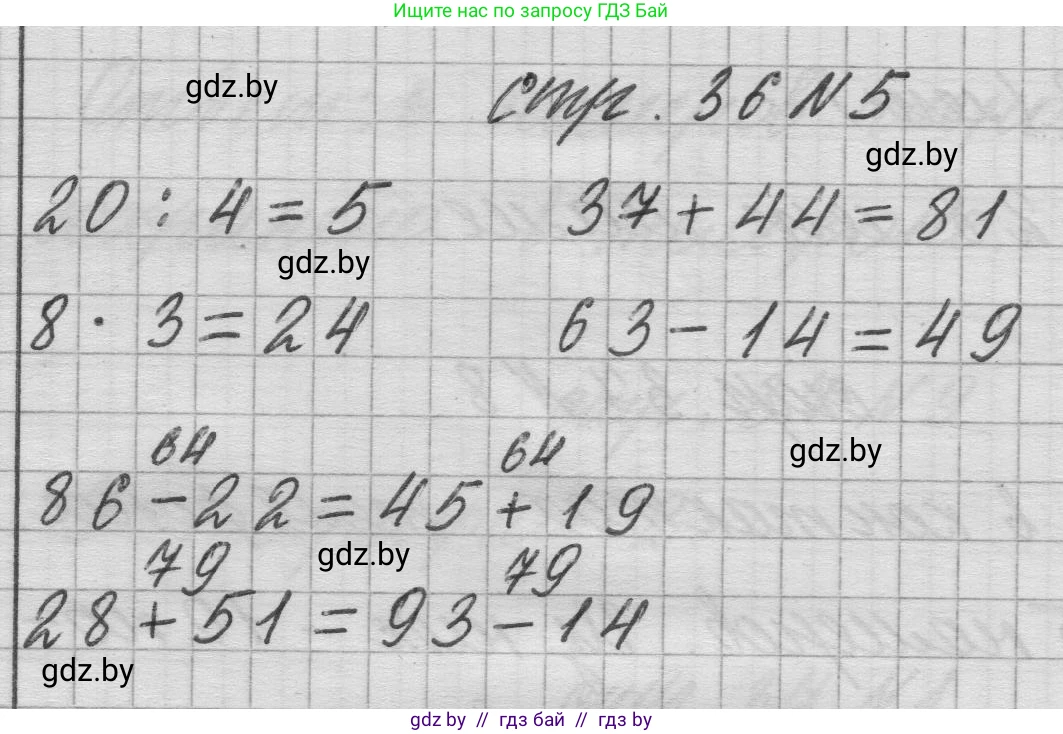 Ищите нас по запросу ГДЗ Бай
gdz.by
стр. 36 N 5
gdz.by
20 : 4 = 5 37 + 44 = 81
gdz.by
8 · 3 = 24 63 - 14 = 49
64 64
gdz.by
86 - 22 = 45 + 19
gdz.by
79 79
28 + 51 = 93 - 14
gdz.by
gdz.by // гдз бай // гдз by